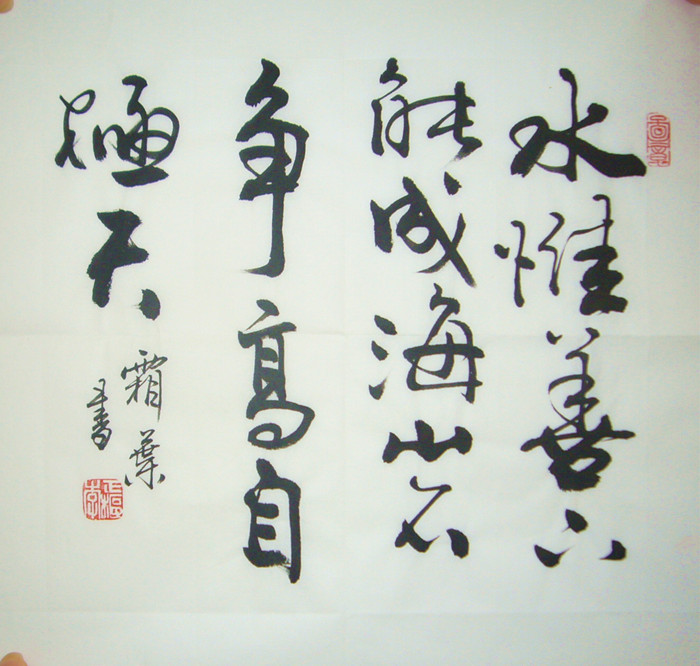 水惟善下
能成海山不
争高自
極天
霜葉
書